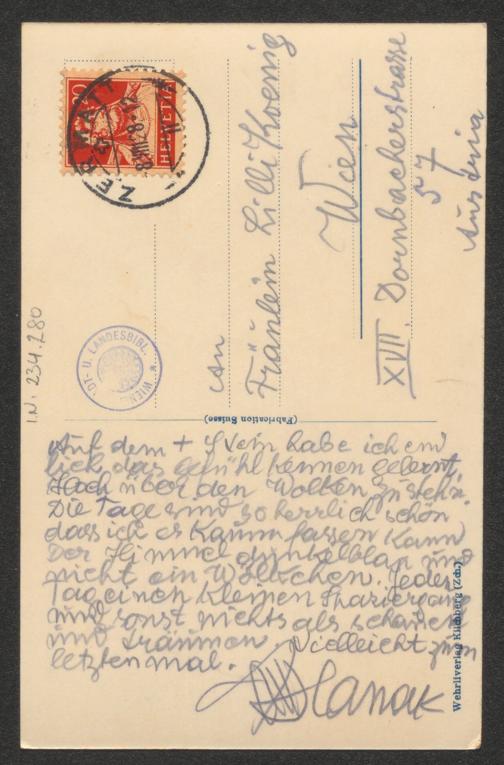 20
HELVETIA
ZERMATT
8.VIII
An
Fräulein Lilli Koenig
Wien
XVII. Dornbacherstrasse
57
Austria
I.N. 234.280
ST- U. LANDESBIBL.
WIEN
(Fabrication Suisse)
Auf dem + Stein habe ich end
lich das gefühl kennen gelernt,
Hoch über den Wolken zu steh'n.
Die Tage sind so herrlich schön
dass ich es kaum fassen kann
Der Himmel dunkelblau und
nicht ein Wölkchen. Jeden
Tag einen kleinen Spaziergang
und sonst nichts als schauen
und träumen Vielleicht zum
letzten mal.
Hanak
Wehrliverlag Kilchberg (Zch.)